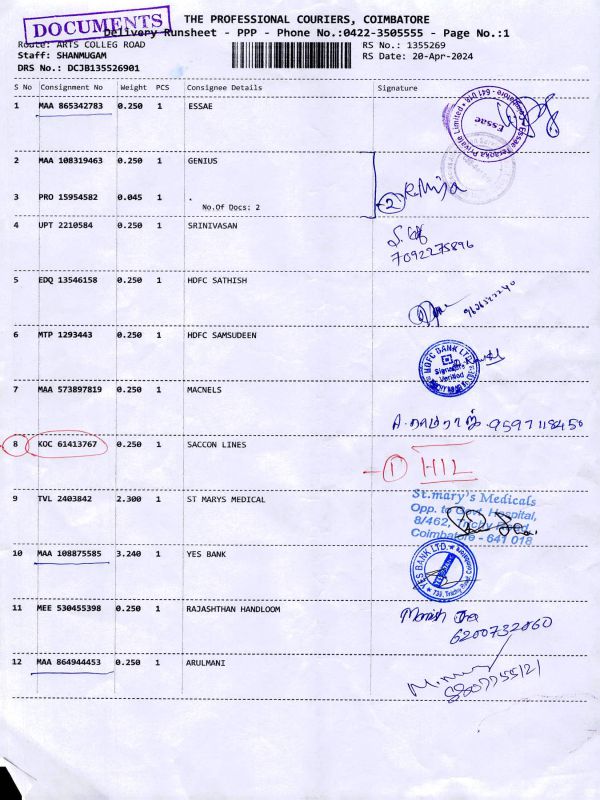 DOCUMENTS
THE PROFESSIONAL COURIERS, COIMBATORE
Delivery Runsheet - PPP - Phone No.:0422-3505555 - Page No.:1
Route: ARTS COLLEG ROAD
RS No.: 1355269
Staff: SHANMUGAM
RS Date: 20-Apr-2024
DRS No.: DCJB135526901
S No Consignment No Weight PCS Consignee Details Signature
1 MAA 865342783 0.250 1 ESSAE
Essae Teraoka Private Limited
Essae
2 MAA 108319463 0.250 1 GENIUS
3 PRO 15954582 0.045 1 .
No.Of Docs: 2
2
4 UPT 2210584 0.250 1 SRINIVASAN
7092275896
5 EDQ 13546158 0.250 1 HDFC SATHISH
6 MTP 1293443 0.250 1 HDFC SAMSUDEEN
HDFC BANK LTD
Signature
Verified
7 MAA 573897819 0.250 1 MACNELS
A. நாமராஜ். 9597118450
8 KOC 61413767 0.250 1 SACCON LINES
1
9 TVL 2403842 2.300 1 ST MARYS MEDICAL
St.mary's Medicals
Opp. to Govt. Hospital,
8/462, Trichy Road,
Coimbatore - 641 018
10 MAA 108875585 3.240 1 YES BANK
YES BANK LTD.
11 MEE 530455398 0.250 1 RAJASHTHAN HANDLOOM
6200732060
12 MAA 864944453 0.250 1 ARULMANI